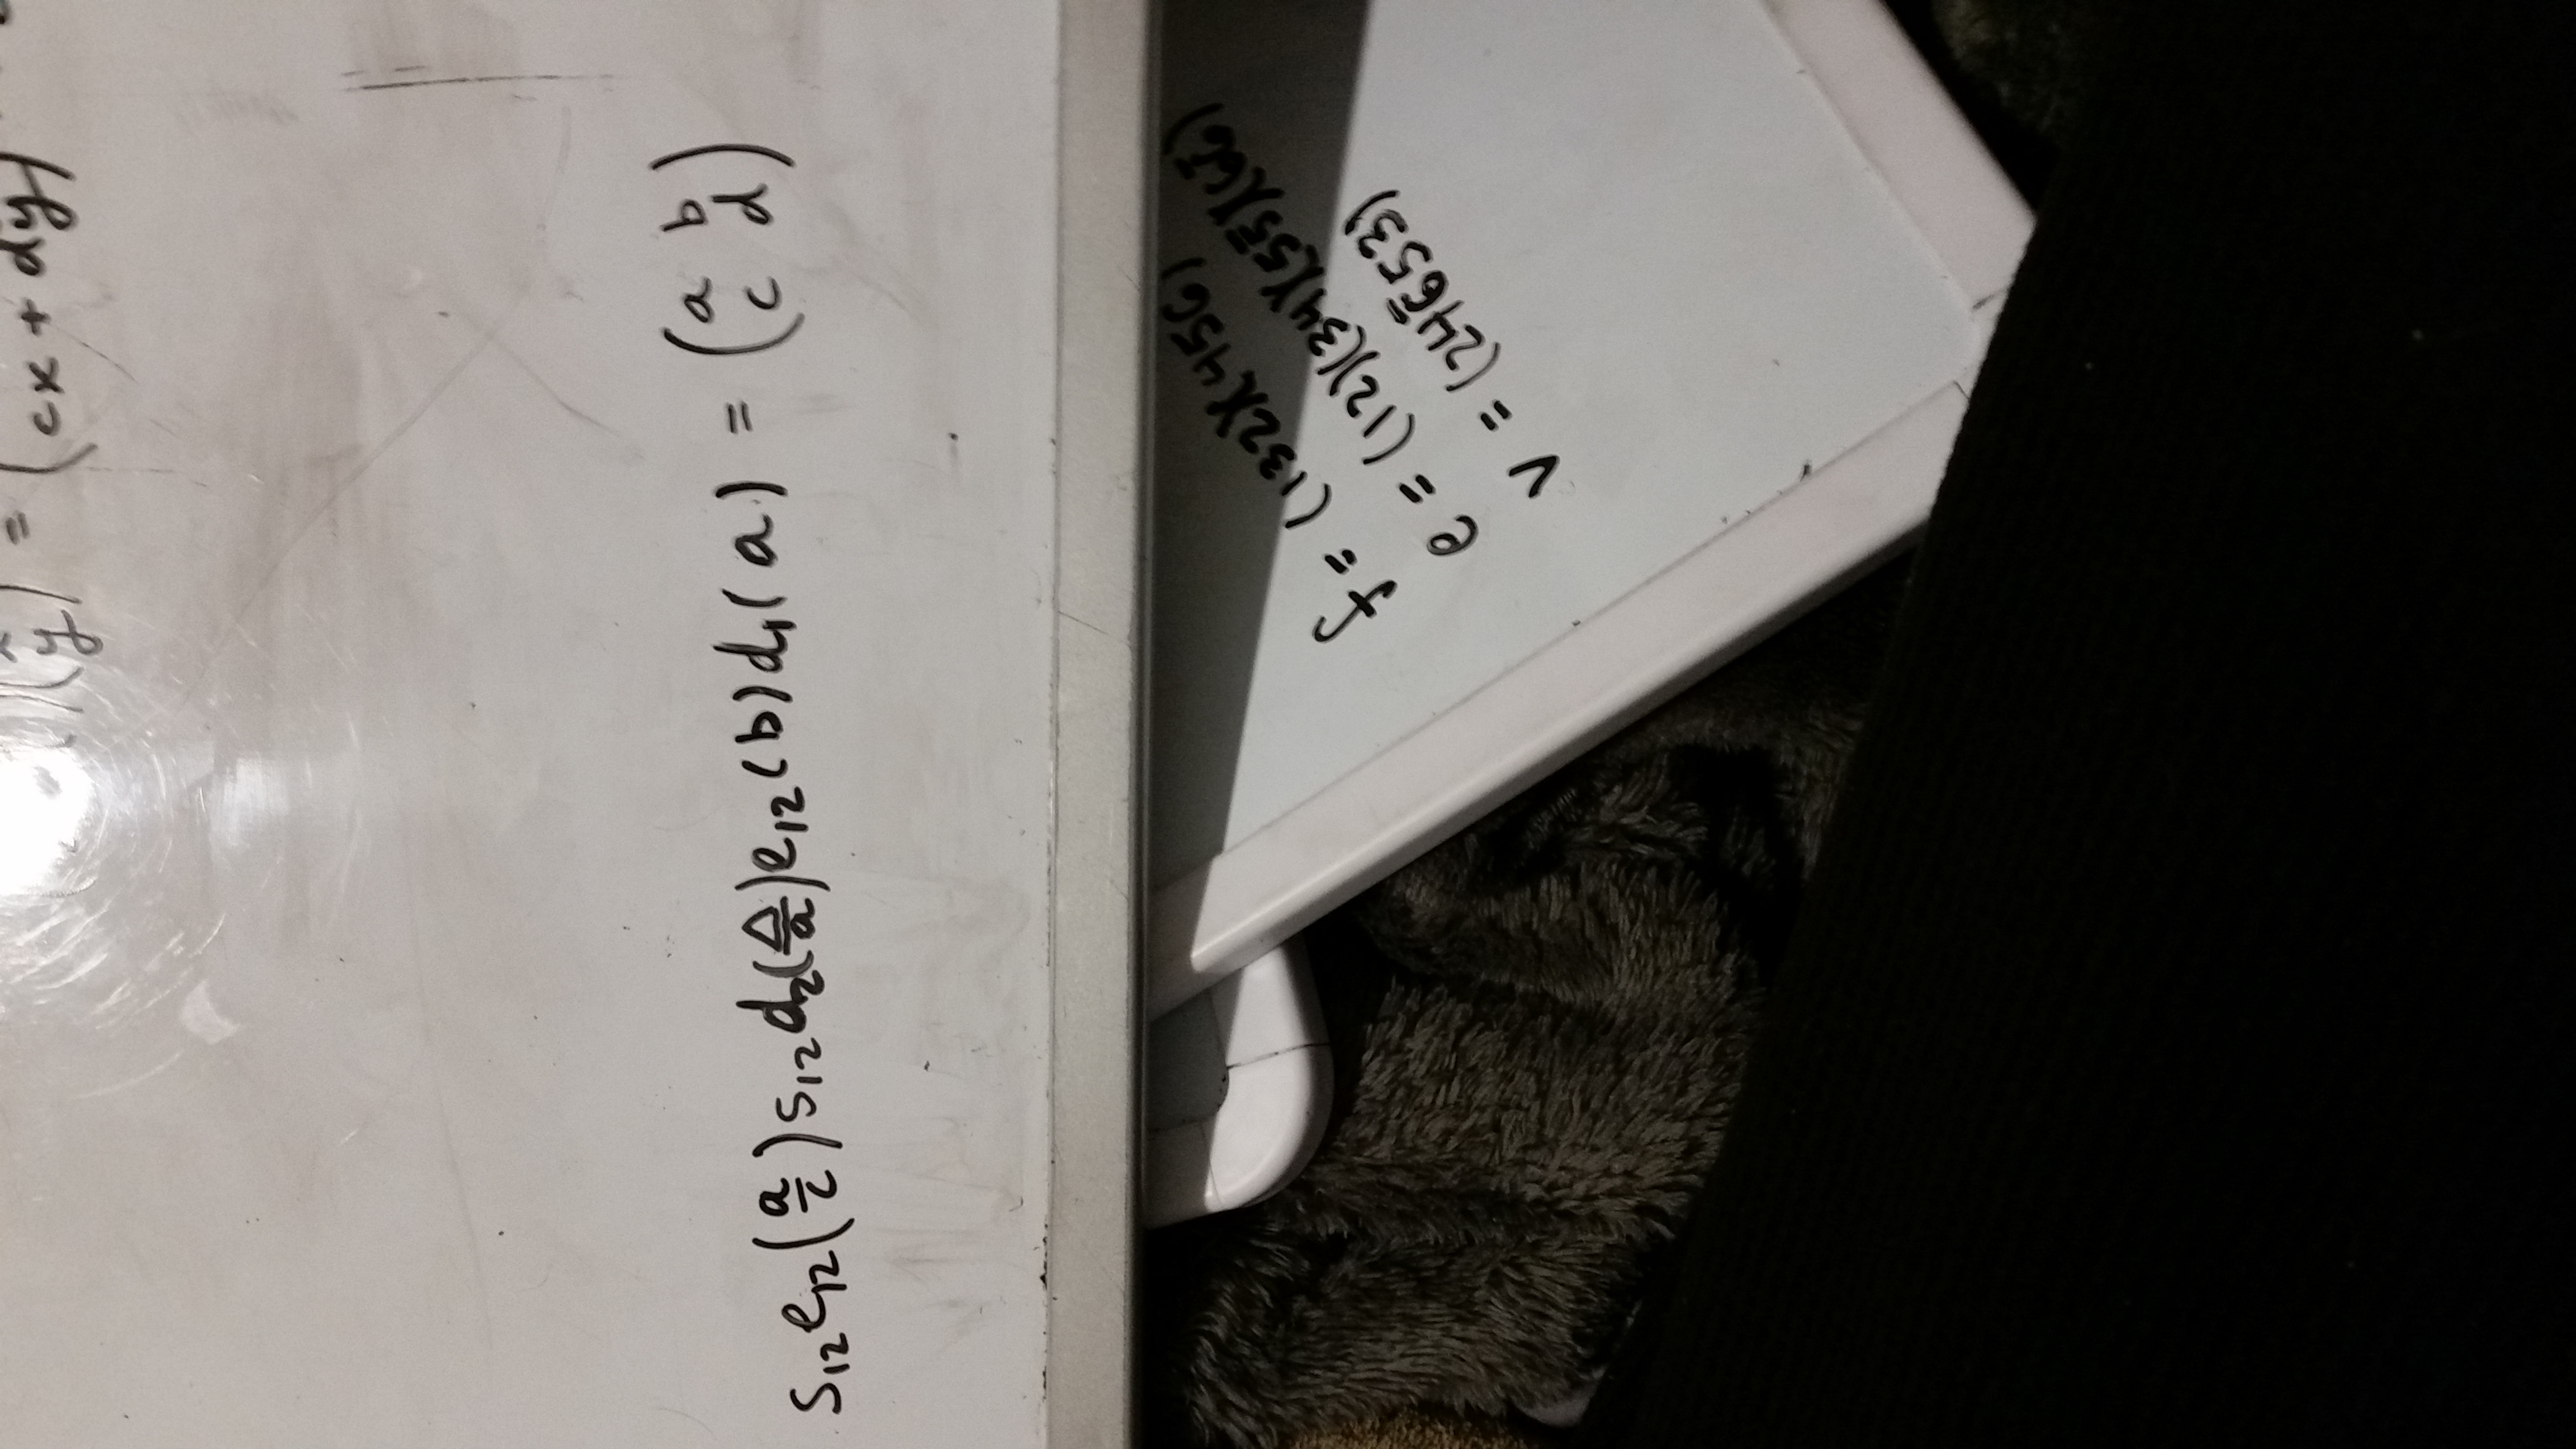 (y) = (cx + dy)
s₁₂e₁₂(a/c)s₁₂d₂(Δ/a)e₁₂(b)d₁(a) = (a b
c d)
f = (132)(456)
e = (12)(34)(55̄)(66̄)
v = (246̄53)